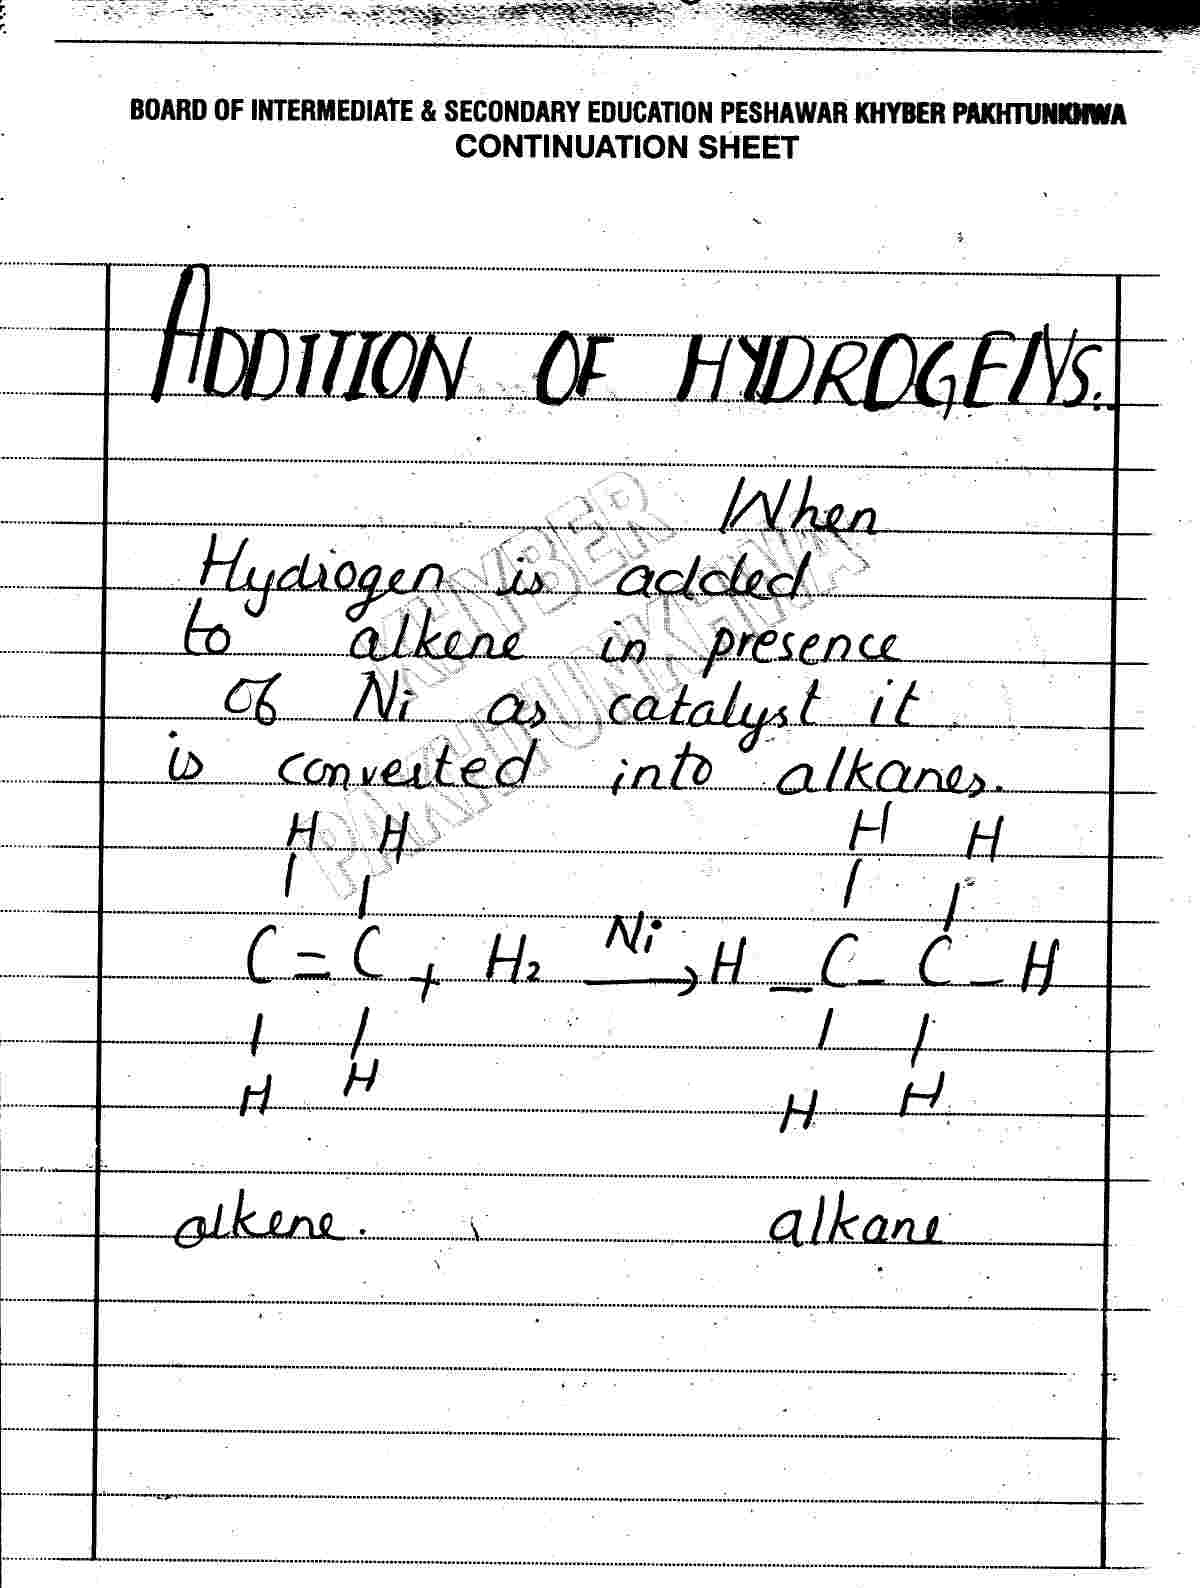 BOARD OF INTERMEDIATE & SECONDARY EDUCATION PESHAWAR KHYBER PAKHTUNKHWA
CONTINUATION SHEET
ADDITION OF HYDROGENS.
KHYBER
PAKHTUNKHWA
When
Hydrogen is added
to alkene in presence
of Ni as catalyst it
is converted into alkanes.
H H H H
C = C + H2 Ni → H – C – C – H
H H H H
alkene. alkane